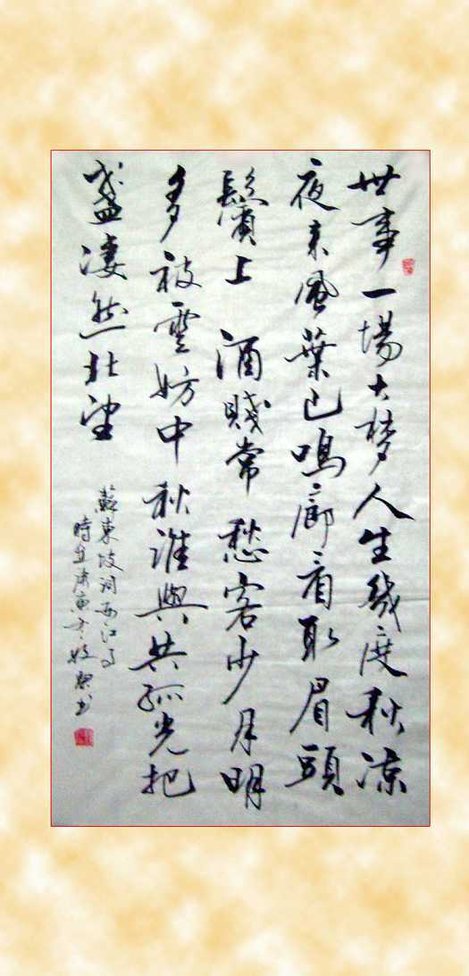 世事一場大梦人生幾度秋凉
夜来風葉已鳴廊看取眉頭
鬢上酒賤常愁客少月明
多被雲妨中秋誰與共孤光把
盏凄然北望
蘇東坡詞西江月